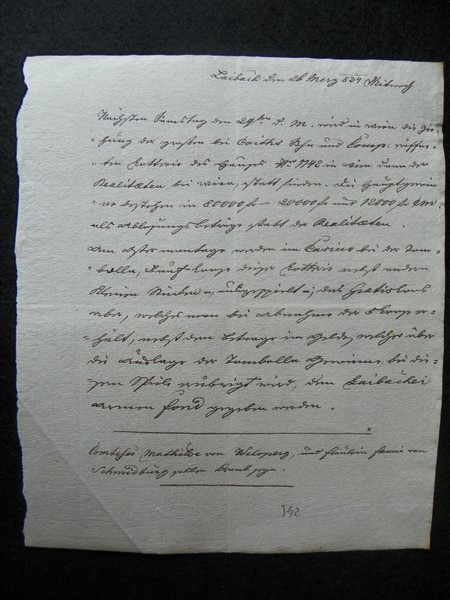 Laibach den 26 Merz 834 Mitwoch
Nächsten Samstag den 29ten d. M. wird in Wien die Zie-
hung der großen bei Coiths Sohn und Comp. eröffne-
ten Lotterie des Hauses No. 1142 in Wien dann der
Realitæten bei Wien, statt finden. Die Hauptgewin
ne bestehen in 80000 fr – 20000 fr und 12000 fr
als Ablösungs beträge statt der Realitæten.
Am Ostermontage werden im Casino bei der Tom-
bolla, Loose dieser Lotterie nebst andern
kleinen ausgespielt, das Gratisloos
aber, welches man bei Abnahme der Loose er-
hält, nebst dem Betrage im Gelde, welcher über
die Auslage der Tombolla Gewinne bei die-
sem Spiele erübrigt wird, dem Laibacher
Armen fond gegeben werden.
Comtesse Mathilde von Welsperg, und fräulein fanni von
Schmidburg sollen Braut seyn.
J42